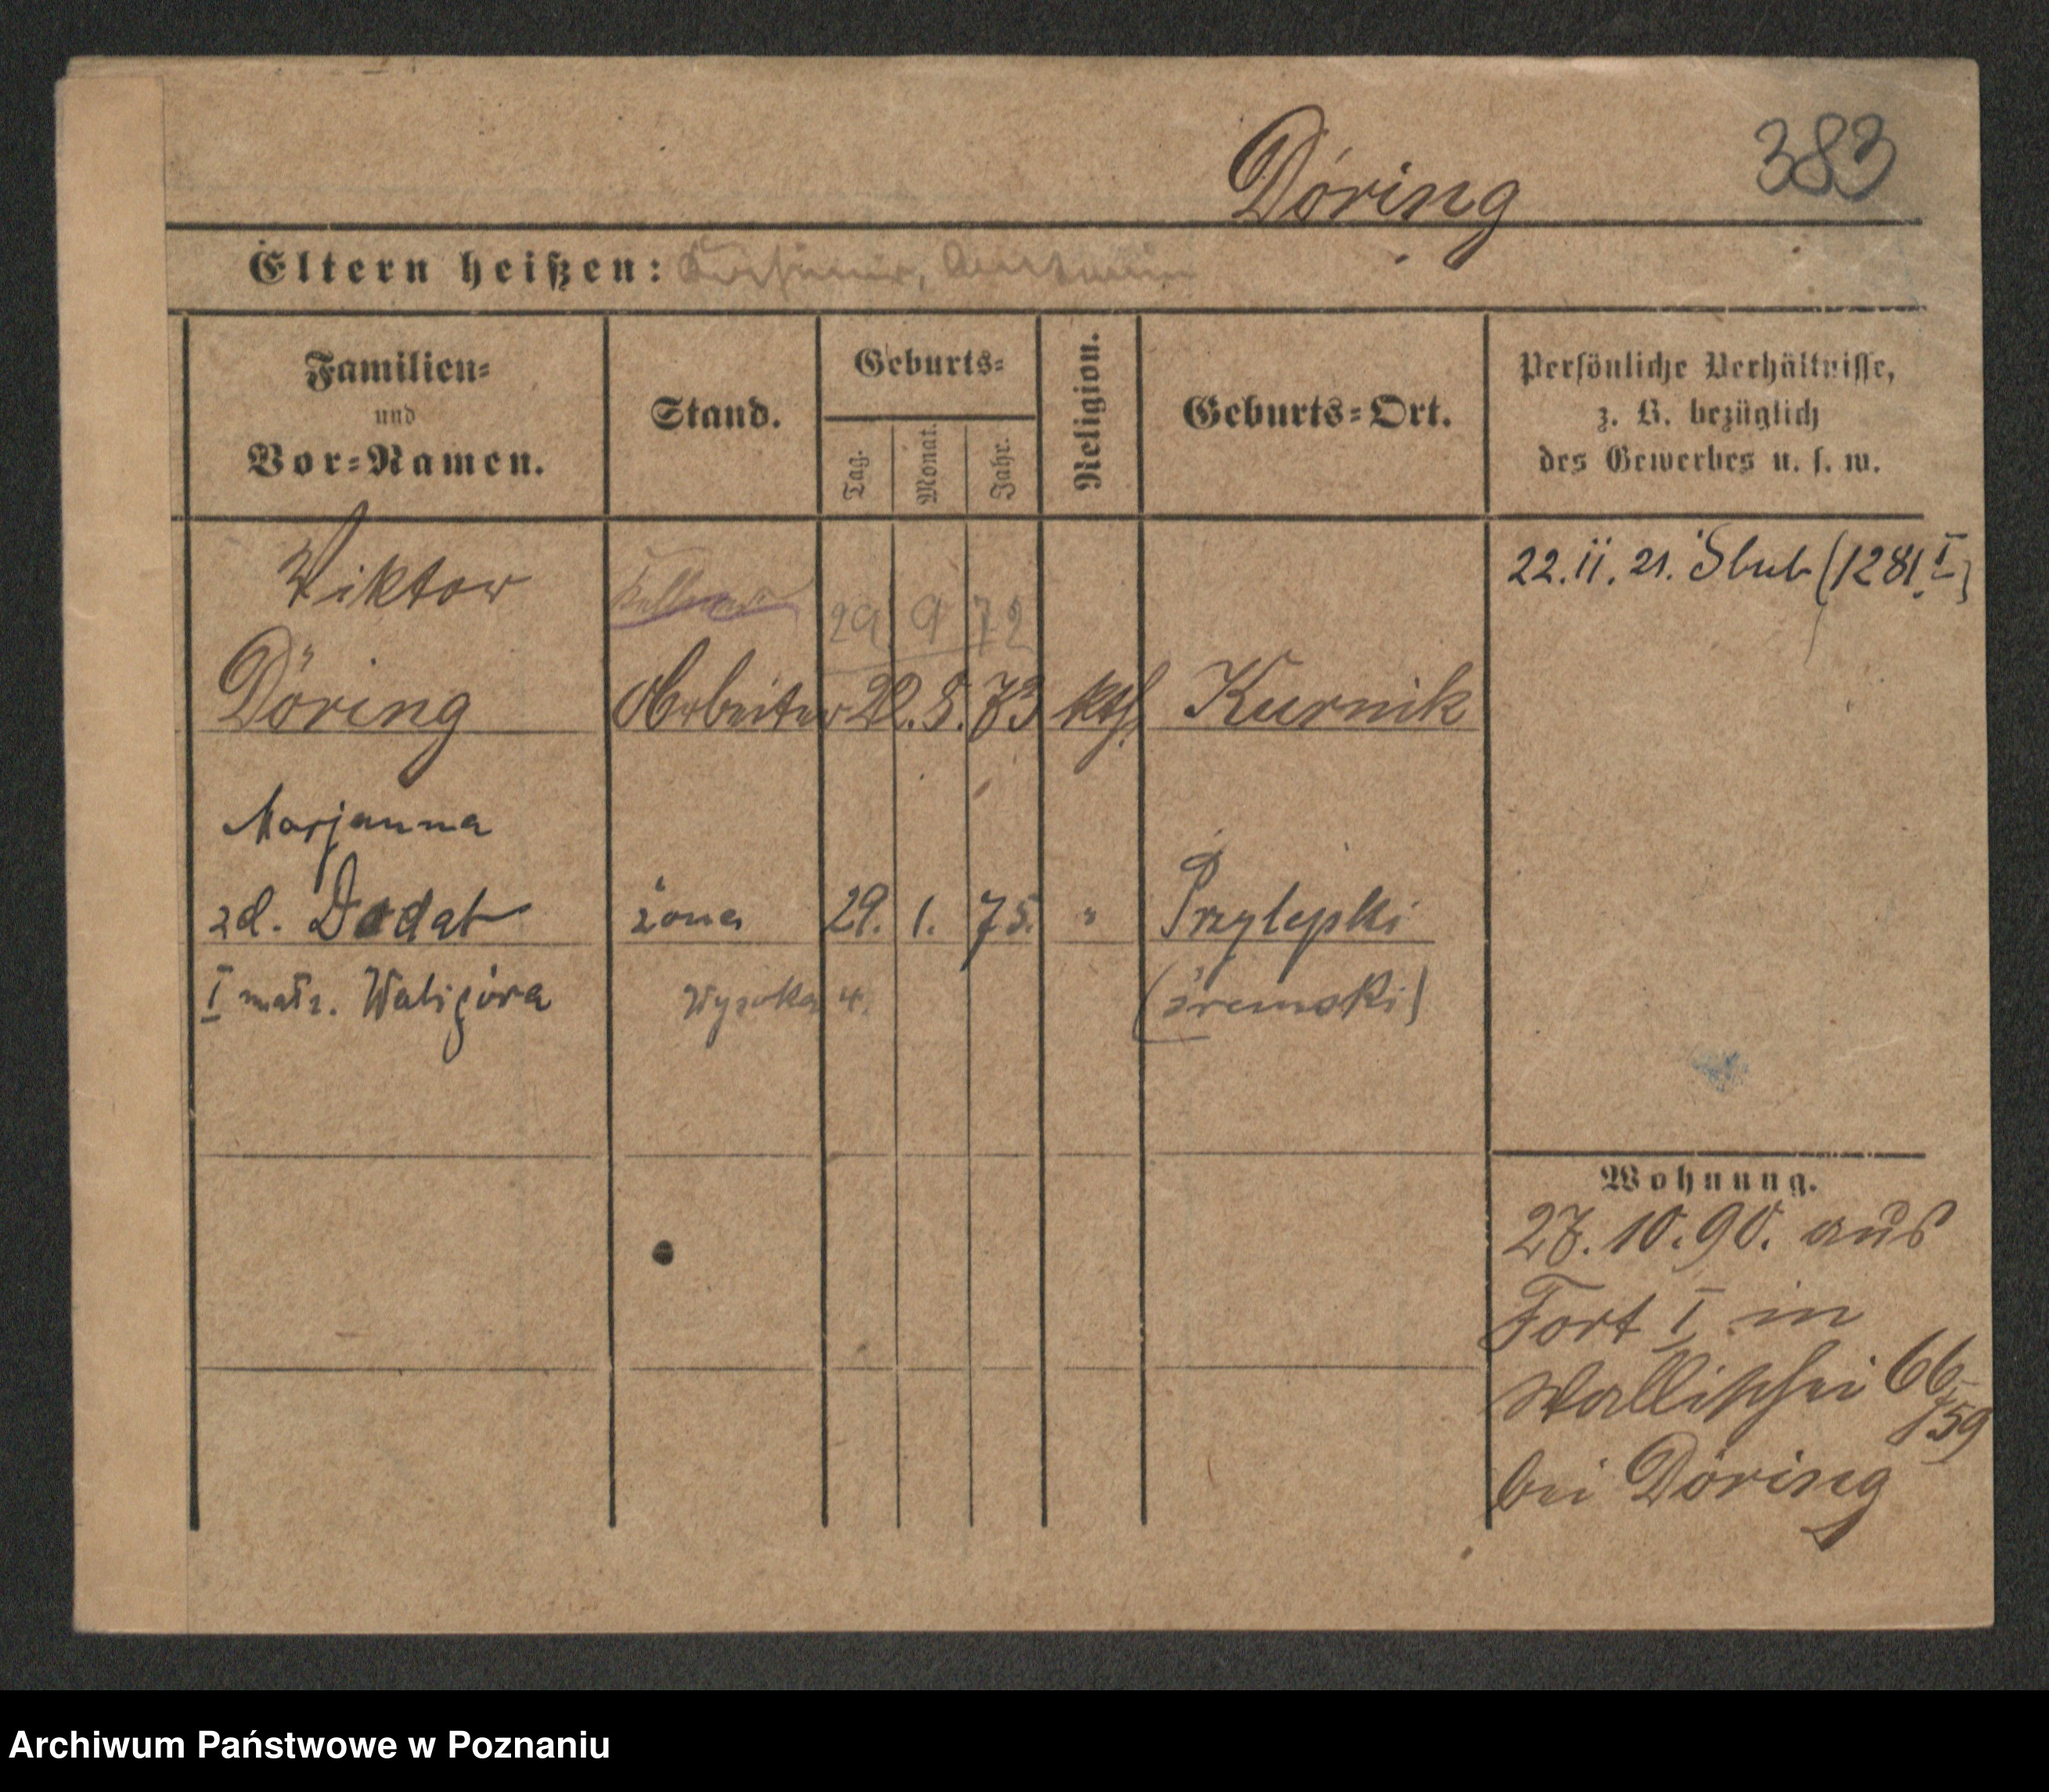 Döring 383
Eltern heißen:
Familien=
und
Vor=Namen.
Stand.
Geburts=
Tag. Monat. Jahr.
Religion.
Geburts=Ort.
Persönliche Verhältnisse,
z. B. bezüglich
des Gewerbes u. s. w.
22. 11. 21. Ślub (1281. I)
Viktor Kellner 29 9 72
Döring Arbeiter 22. 5. 73 kth. Kurnik
Marjanna
zd. Dodat żona 29. 1. 75. " Przylepki
I małż. Waligóra Wysoka 4. (śremski)
Wohnung.
27. 10. 90. aus
Fort I in
Wallischei 66/159
bei Döring
Archiwum Państwowe w Poznaniu